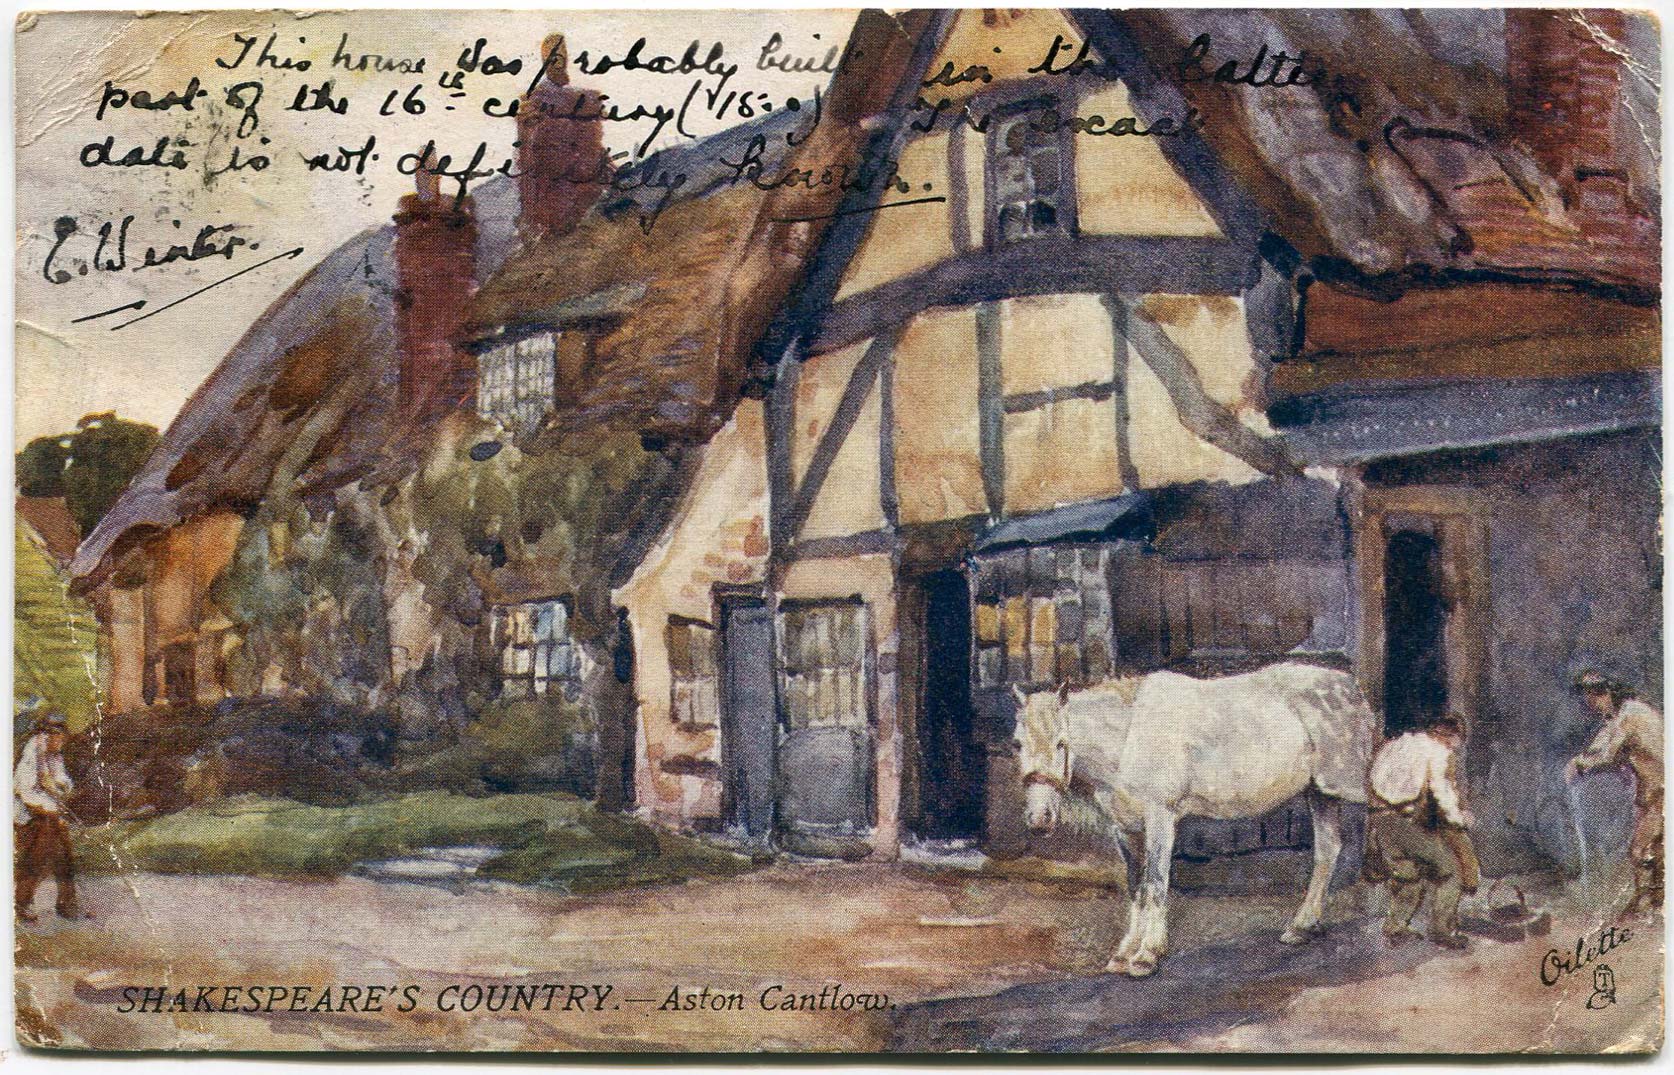 This house was probably built in the latter
part of the 16th century (15.0) The exact
date is not definitely known.
E. Winter.
SHAKESPEARE'S COUNTRY.—Aston Cantlow.
Oilette